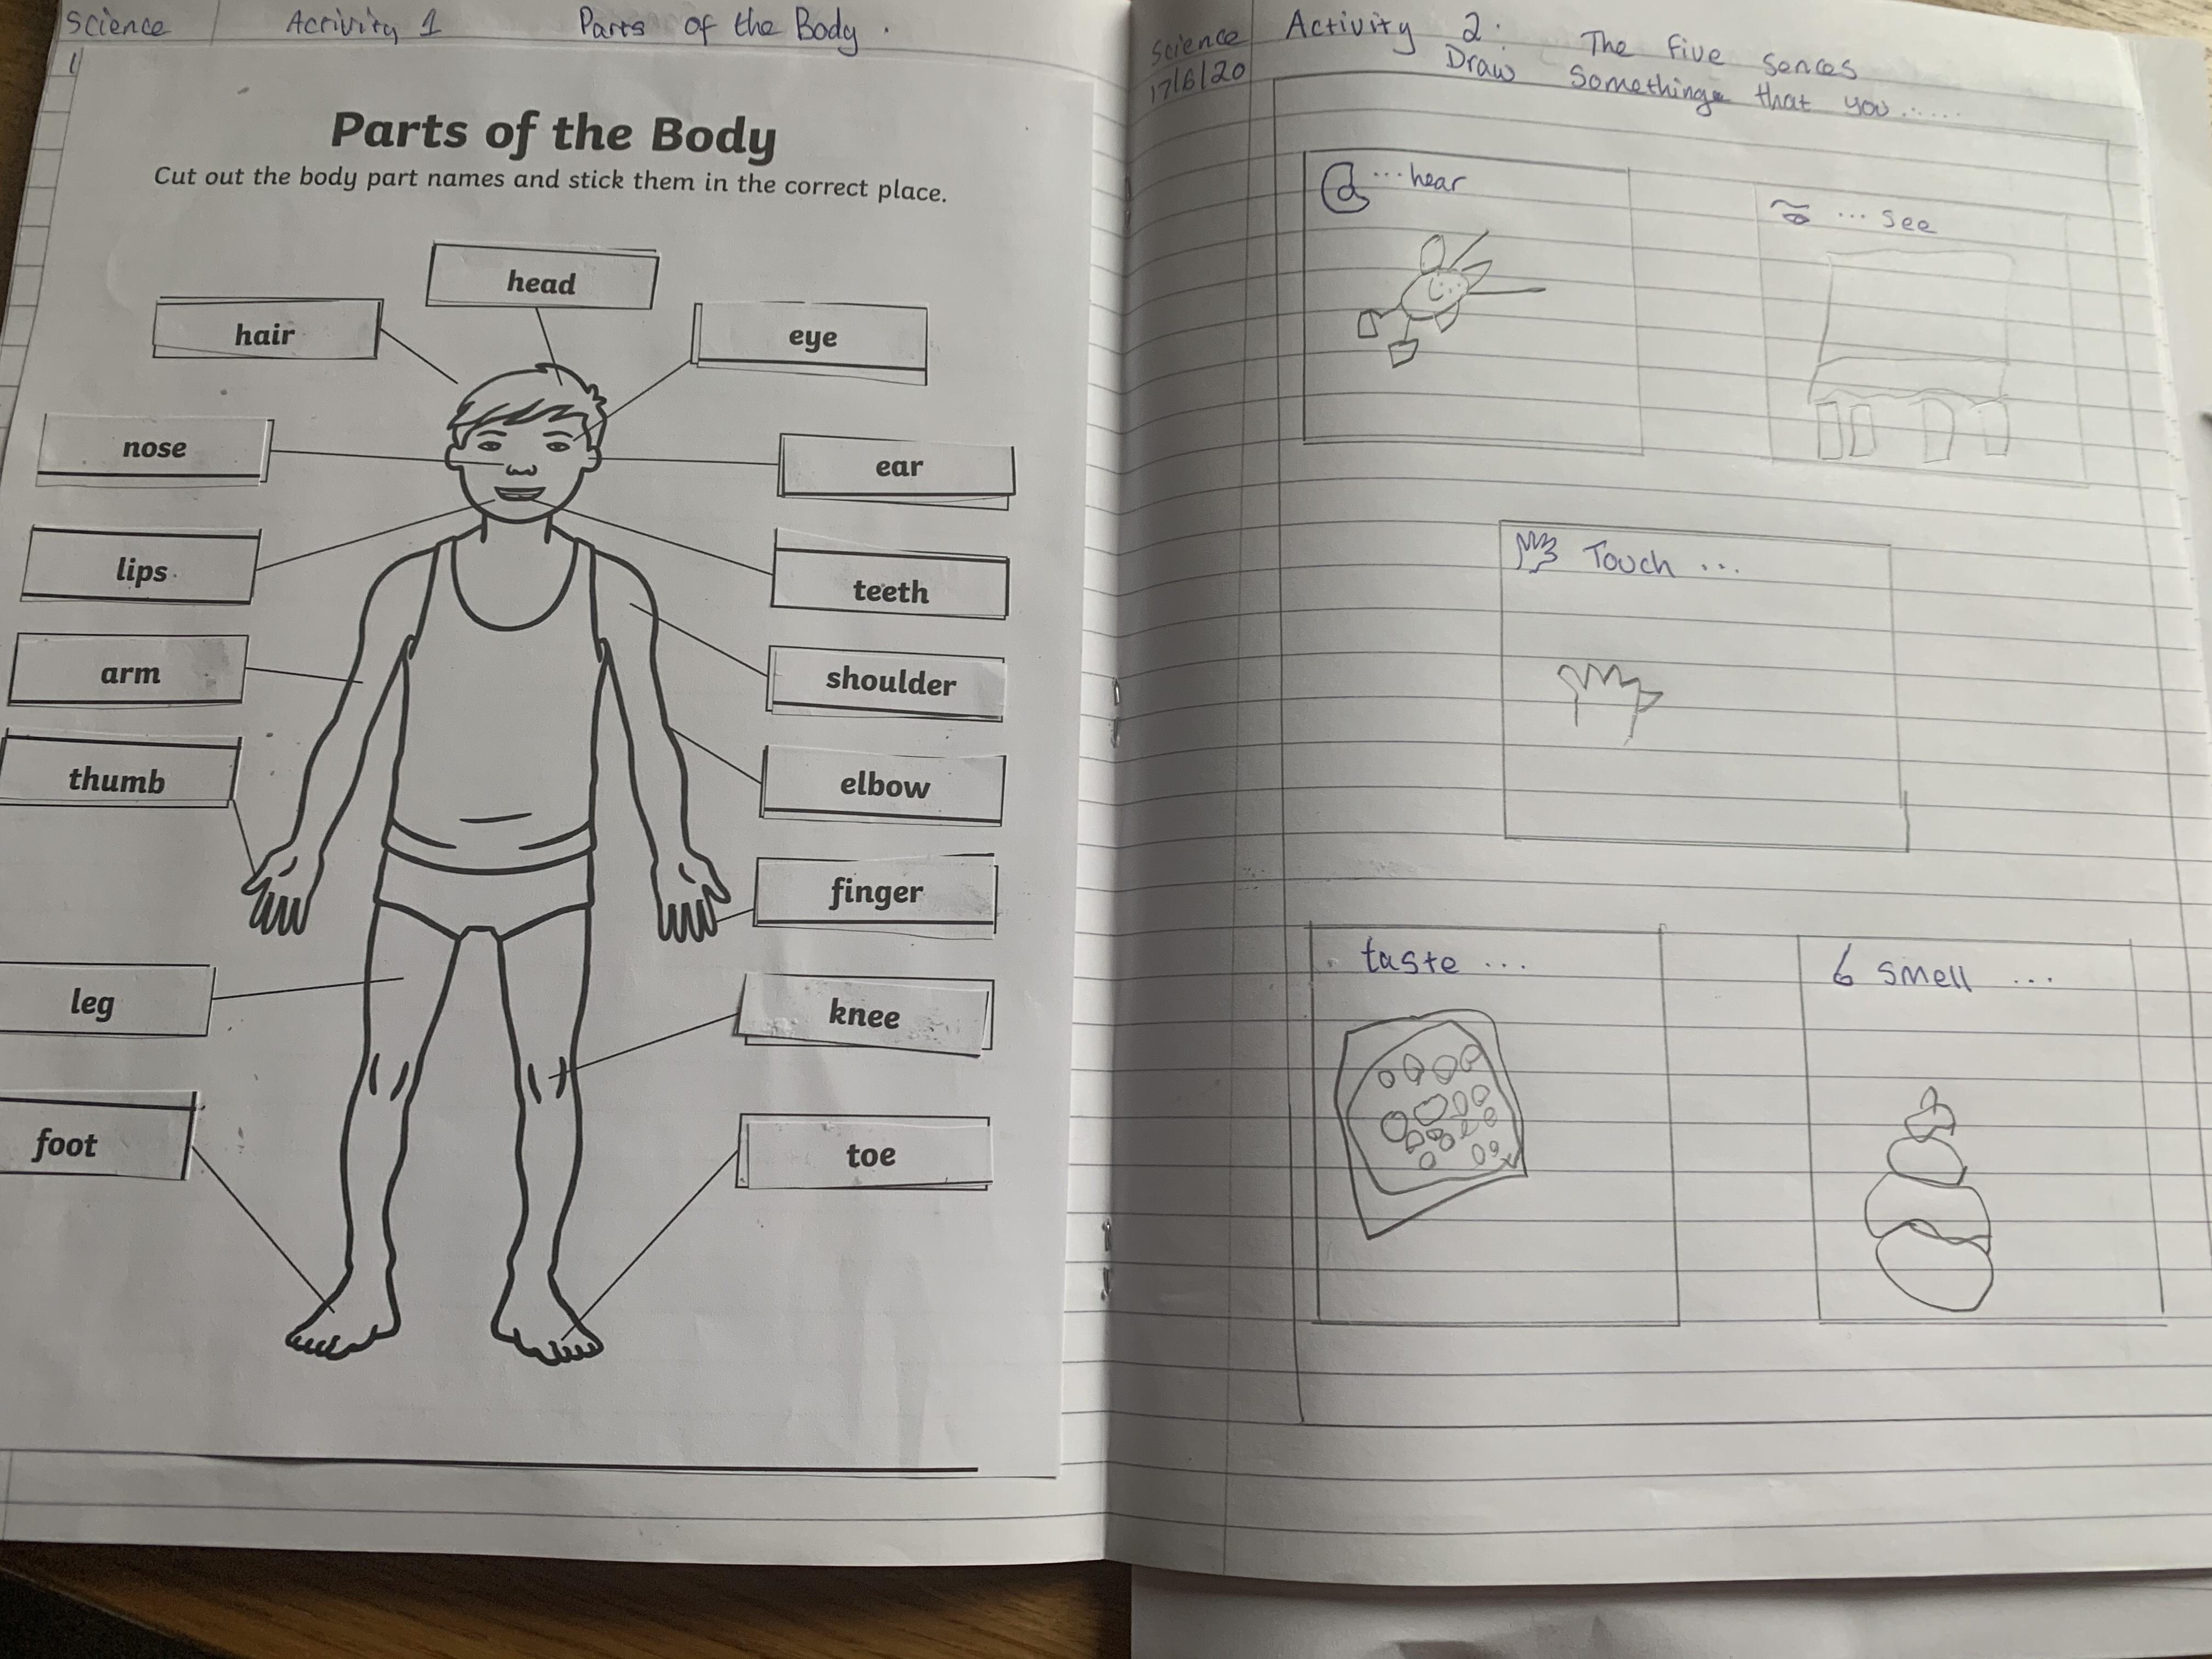 Science Activity 1 Parts of the Body.
Parts of the Body
Cut out the body part names and stick them in the correct place.
head
hair
eye
nose
ear
lips
teeth
arm
shoulder
thumb
elbow
finger
leg
knee
foot
toe
Science
17/6/20
Activity 2: The five sences
Draw Something that you......
...hear
... see
Touch ...
taste ...
smell ...